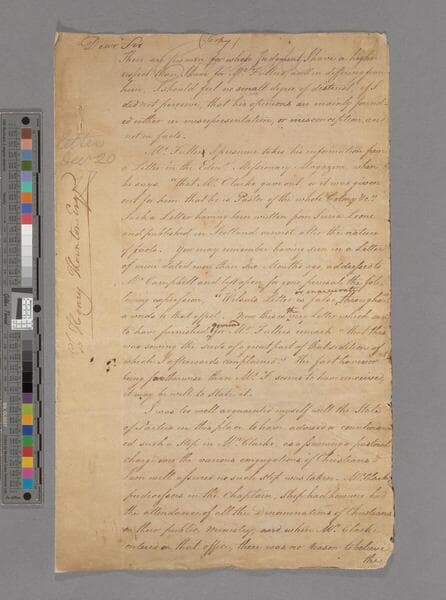 Dear Sir (Copy)
There are few men for whose Judgment I have a higher
respect than I have for Mr. Fuller's and in differing from
him, I should feel no small degree of distrust, if I
did not perceive, that his opinions are mainly found-
ed either on misrepresentation, or misconception, and
not on facts.
Mr. Fuller I presume takes his information from
a Letter in the Edinr. Missionary Magazine, when
he says "that Mr. Clarke gave out or it was given
out for him that he is Pastor of the whole Colony &c"
Such a Letter having been written from Sierra Leone
and published in Scotland cannot alter the nature
of facts. You may remember having seen in a Letter
of mine dated more than two Months ago, addressed to
Mr. Campbell and left open for your perusal the fol-
lowing expression, "Wilson's Letter is false, throughout
or inaccurate
words to that effect. Now this is the Letter which
to have furnished ground for Mr. Fuller's remark "that this
was sowing the seeds of a great part of that sedition of
which I afterwards complained." The fact however
being far otherwise than Mr. F. seems to have conceived,
it may be well to state it.
I was too well acquainted myself with the State
of Parties in this place to have advised or countenanc-
ed such a Step in Mr. Clarke, as assuming a pastoral
charge over the various congregations of Christians &
I am well assured no such step was taken. Mr. Clarke's
predecessors in the Chaplain Ship had however had
the attendance of all the denominations of Christians
on their public ministry, and when Mr. Clark
entered on that office, there was no reason to believe
the
Henry Thornton Esqr.
Letter